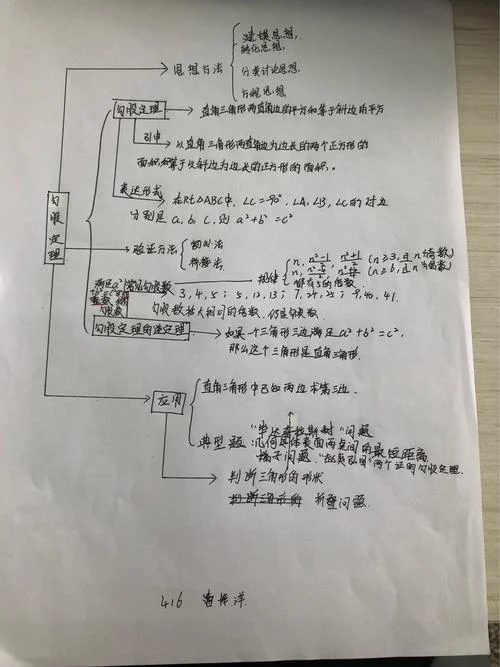 建模思想,
转化思想,
思想方法
分类讨论思想
方程思想
勾股定理
直角三角形两直角边的平方和等于斜边的平方
引申
以直角三角形两直角边为边长的两个正方形的
面积和等于以斜边为边长的正方形的面积。
表达形式
在Rt△ABC中, ∠C=90°, ∠A, ∠B, ∠C的对边
分别是 a, b, c, 则 a²+b²=c²
勾股定理
验证方法
割补法
拼接法
满足a²+b²=c²的
常见勾股数
规律
n, n²-1/2, n²+1/2 (n≥3, 且n为奇数)
(n≥6, 且n为偶数)
都有5的倍数
3, 4, 5; 5, 12, 13; 7, 24, 25; 9, 40, 41.
勾股数扩大相同的倍数, 仍是勾股数
勾股定理的逆定理
如果一个三角形三边满足 a²+b²=c²,
那么这个三角形是直角三角形.
应用
直角三角形中已知两边求第三边.
"毕达哥拉斯树"问题
典型题: 几何具体表面两点间的最短距离
梯子问题. "赵爽弦图"两个证明勾股定理.
判断三角形的形状
折叠问题.
416